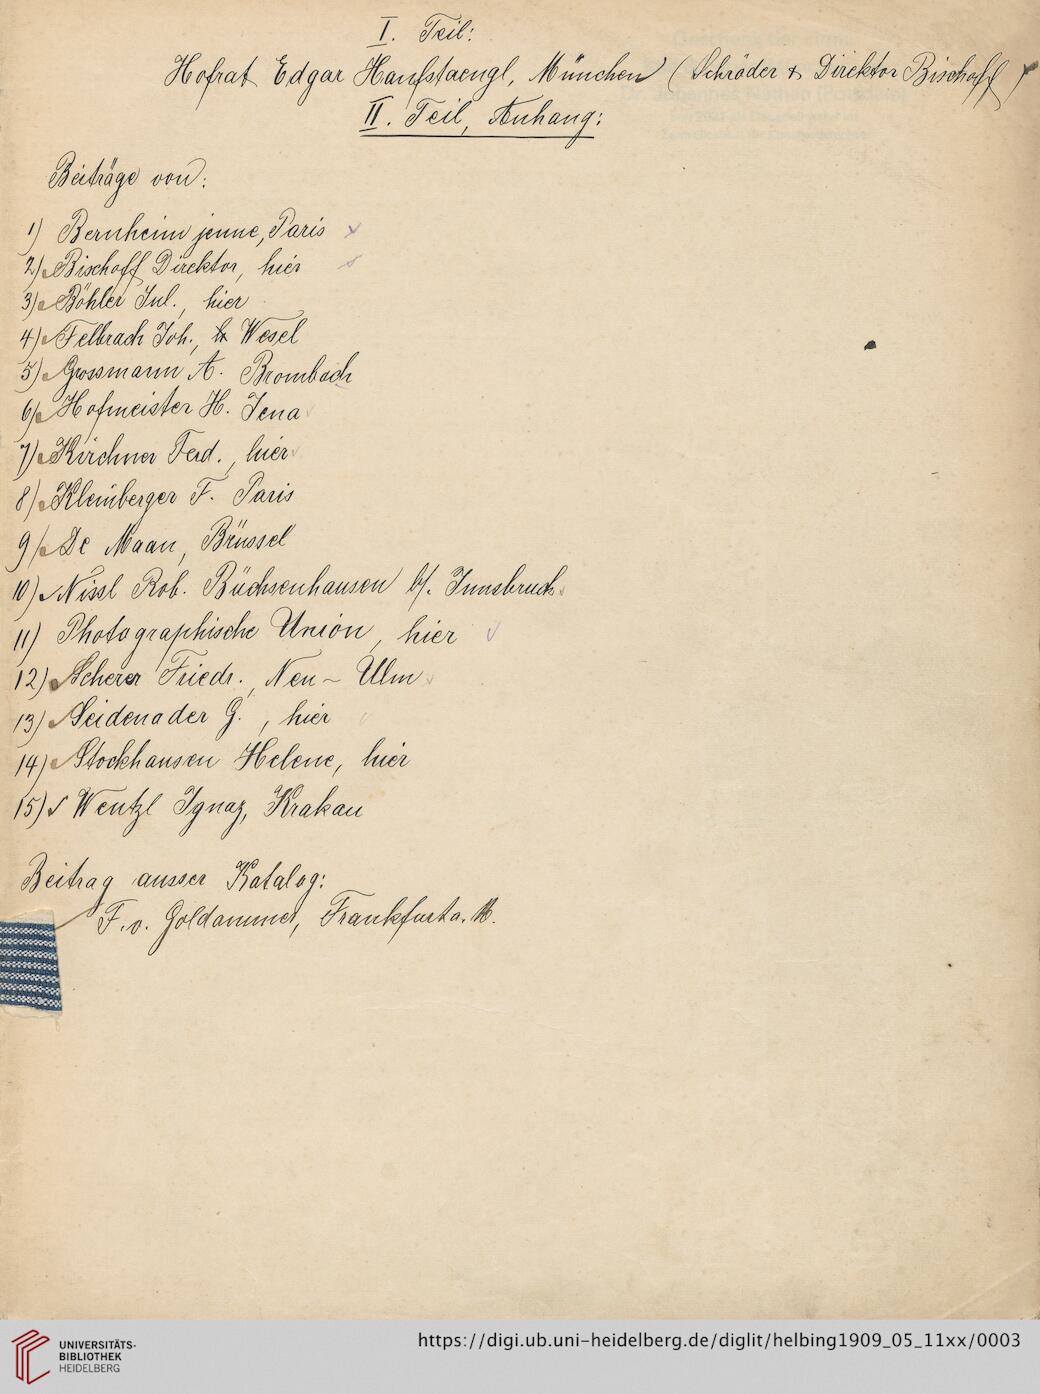 I. Teil:
Hofrat Edgar Hanfstaengl, München (Schröder & Direktor Bischoff)
II. Teil, Anhang:
Beiträge von:
1) Bernheim jeune, Paris
2) Bischoff Direktor, hier
3) Böhler Jul., hier
4) Felbrach Joh., Wesel
5) Grossmann A. Brombach
6) Hofmeister H. Jena
7) Kirchner Ferd., hier
8) Kleinberger F. Paris
9) De Maan, Brüssel
10) Nissl Rob. Büchsenhausen b/. Innsbruck
11) Photographische Union, hier
12) Scherer Friedr., Neu-Ulm
13) Seidenader G., hier
14) Stockhausen Helene, hier
15) Wentzl Ignaz, Krakau
Beitrag ausser Katalog:
F. v. Goldammer, Frankfurt a. M.
UNIVERSITÄTS-
BIBLIOTHEK
HEIDELBERG
https://digi.ub.uni-heidelberg.de/diglit/helbing1909_05_11xx/0003